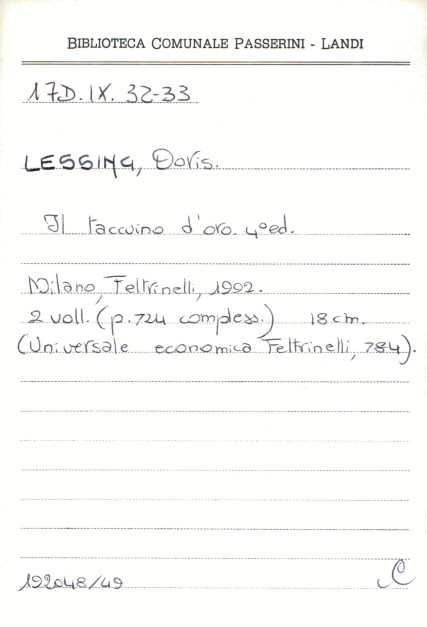 BIBLIOTECA COMUNALE PASSERINI - LANDI
17D.IX. 32-33
LESSING, Doris.
Il taccuino d'oro. 4ºed.
Milano, Feltrinelli, 1992.
2 voll. (p.724 compless.) 18 cm.
(Universale economica Feltrinelli, 784).
192048/49 C